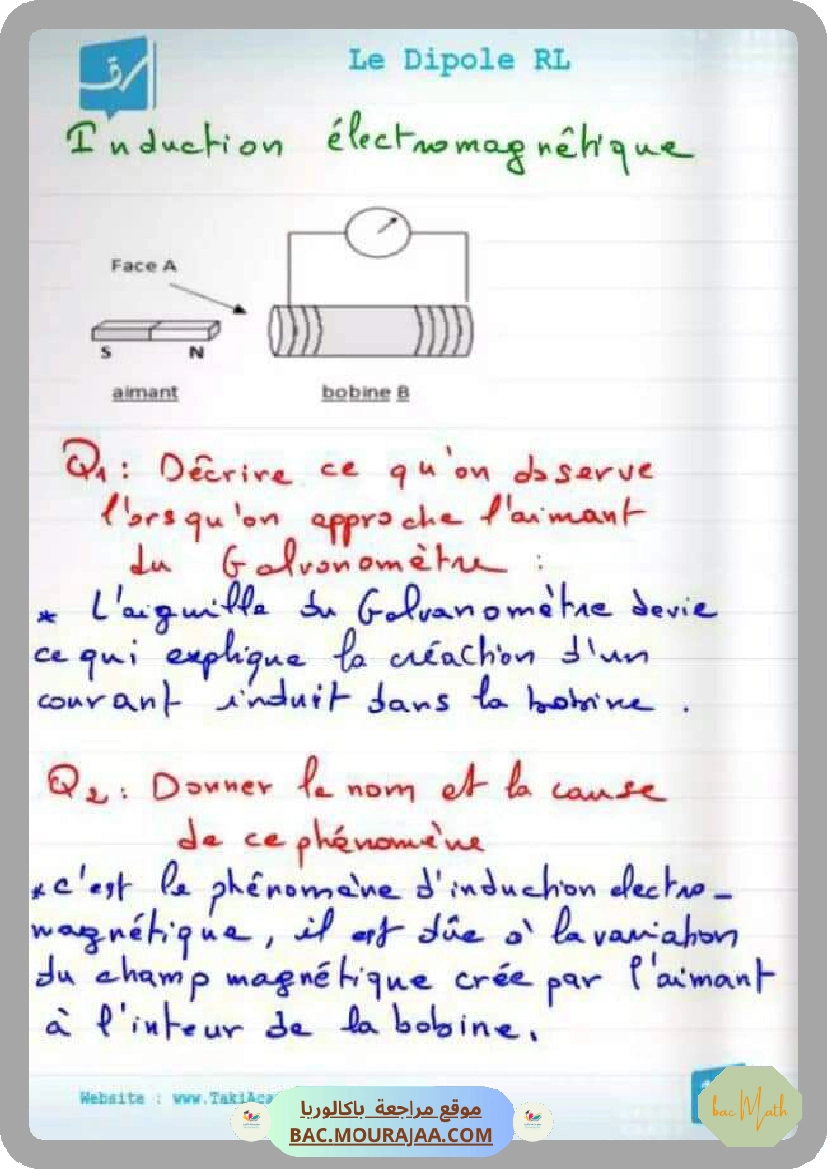 Le Dipole RL
Induction électromagnêtique
Face A
S N
aimant
bobine B
Q1 : Dêcrire ce qu'on observe
lorsqu'on approche l'aimant
du Galvanomètre :
* L'aiguille du Galvanomètre devie
ce qui explique la créaction d'un
courant induit dans la bobine .
Q2 : Donner le nom et la cause
de ce phénomène
* c'est le phénomène d'induction electro-
magnétique, il est dûe à la variation
du champ magnétique crée par l'aimant
à l'inteur de la bobine.
Website : www.TakiAca
موقع مراجعة باكالوريا
BAC.MOURAJAA.COM
bac Math